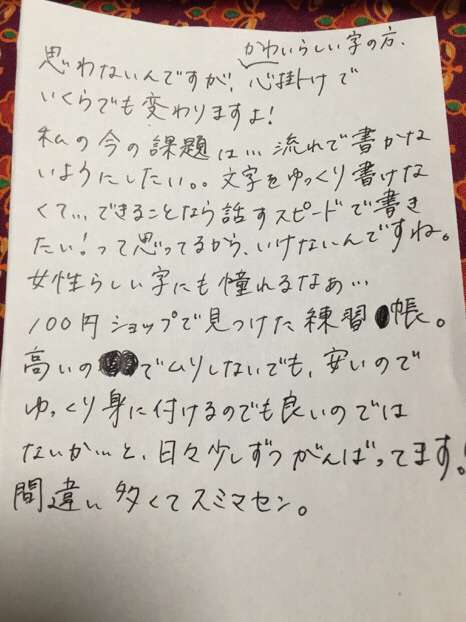 かわいらしい字の方、
思わないんですが、心掛けで
いくらでも変わりますよ!
私の今の課題は…流れで書かな
いようにしたい。。文字をゆっくり書けな
くて…できることなら話すスピードで書き
たい!って思ってるから、いけないんですね。
女性らしい字にも憧れるなぁ…
100円ショップで見つけた練習帳。
高いのでムリしないでも、安いので
ゆっくり身に付けるのでも良いのでは
ないか…と、日々少しずつがんばってます!
間違い多くてスミマセン。